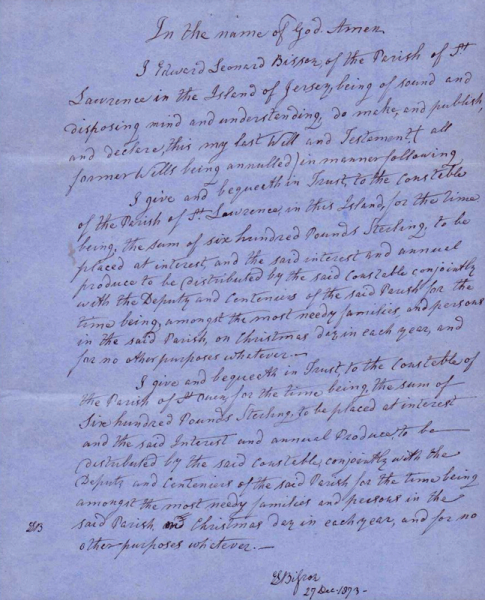 In the name of God. Amen.
I Edward Leonard Bisson, of the Parish of St
Lawrence in the Island of Jersey, being of sound and
disposing mind and understanding, do make, and publish,
and declare, this my last Will and Testament, (all
former Wills being annulled) in manner following
I give and bequeath in Trust, to the Constable
of the Parish of St. Lawrence, in this Island, for the time
being, the sum of six hundred Pounds Sterling, to be
placed at interest, and the said interest and annual
produce to be distributed by the said Constable conjointly
with the Deputy and Centeniers of the said Parish for the
time being, amongst the most needy families, and persons
in the said Parish, on Christmas day in each year, and
for no other purposes whatever.—
I give and bequeath in Trust to the Constable of
the Parish of St Ouen, for the time being, the sum of
Six hundred Pounds Sterling, to be placed at interest
and the said Interest and annual Produce, to be
distributed by the said Constable, conjointly with the
Deputy and Centeniers of the said Parish for the time being
amongst the most needy families and persons in the
said Parish on Christmas day in each year, and for no
other purposes whatever.—
ELB
ELBisson
27 Dec. 1873-